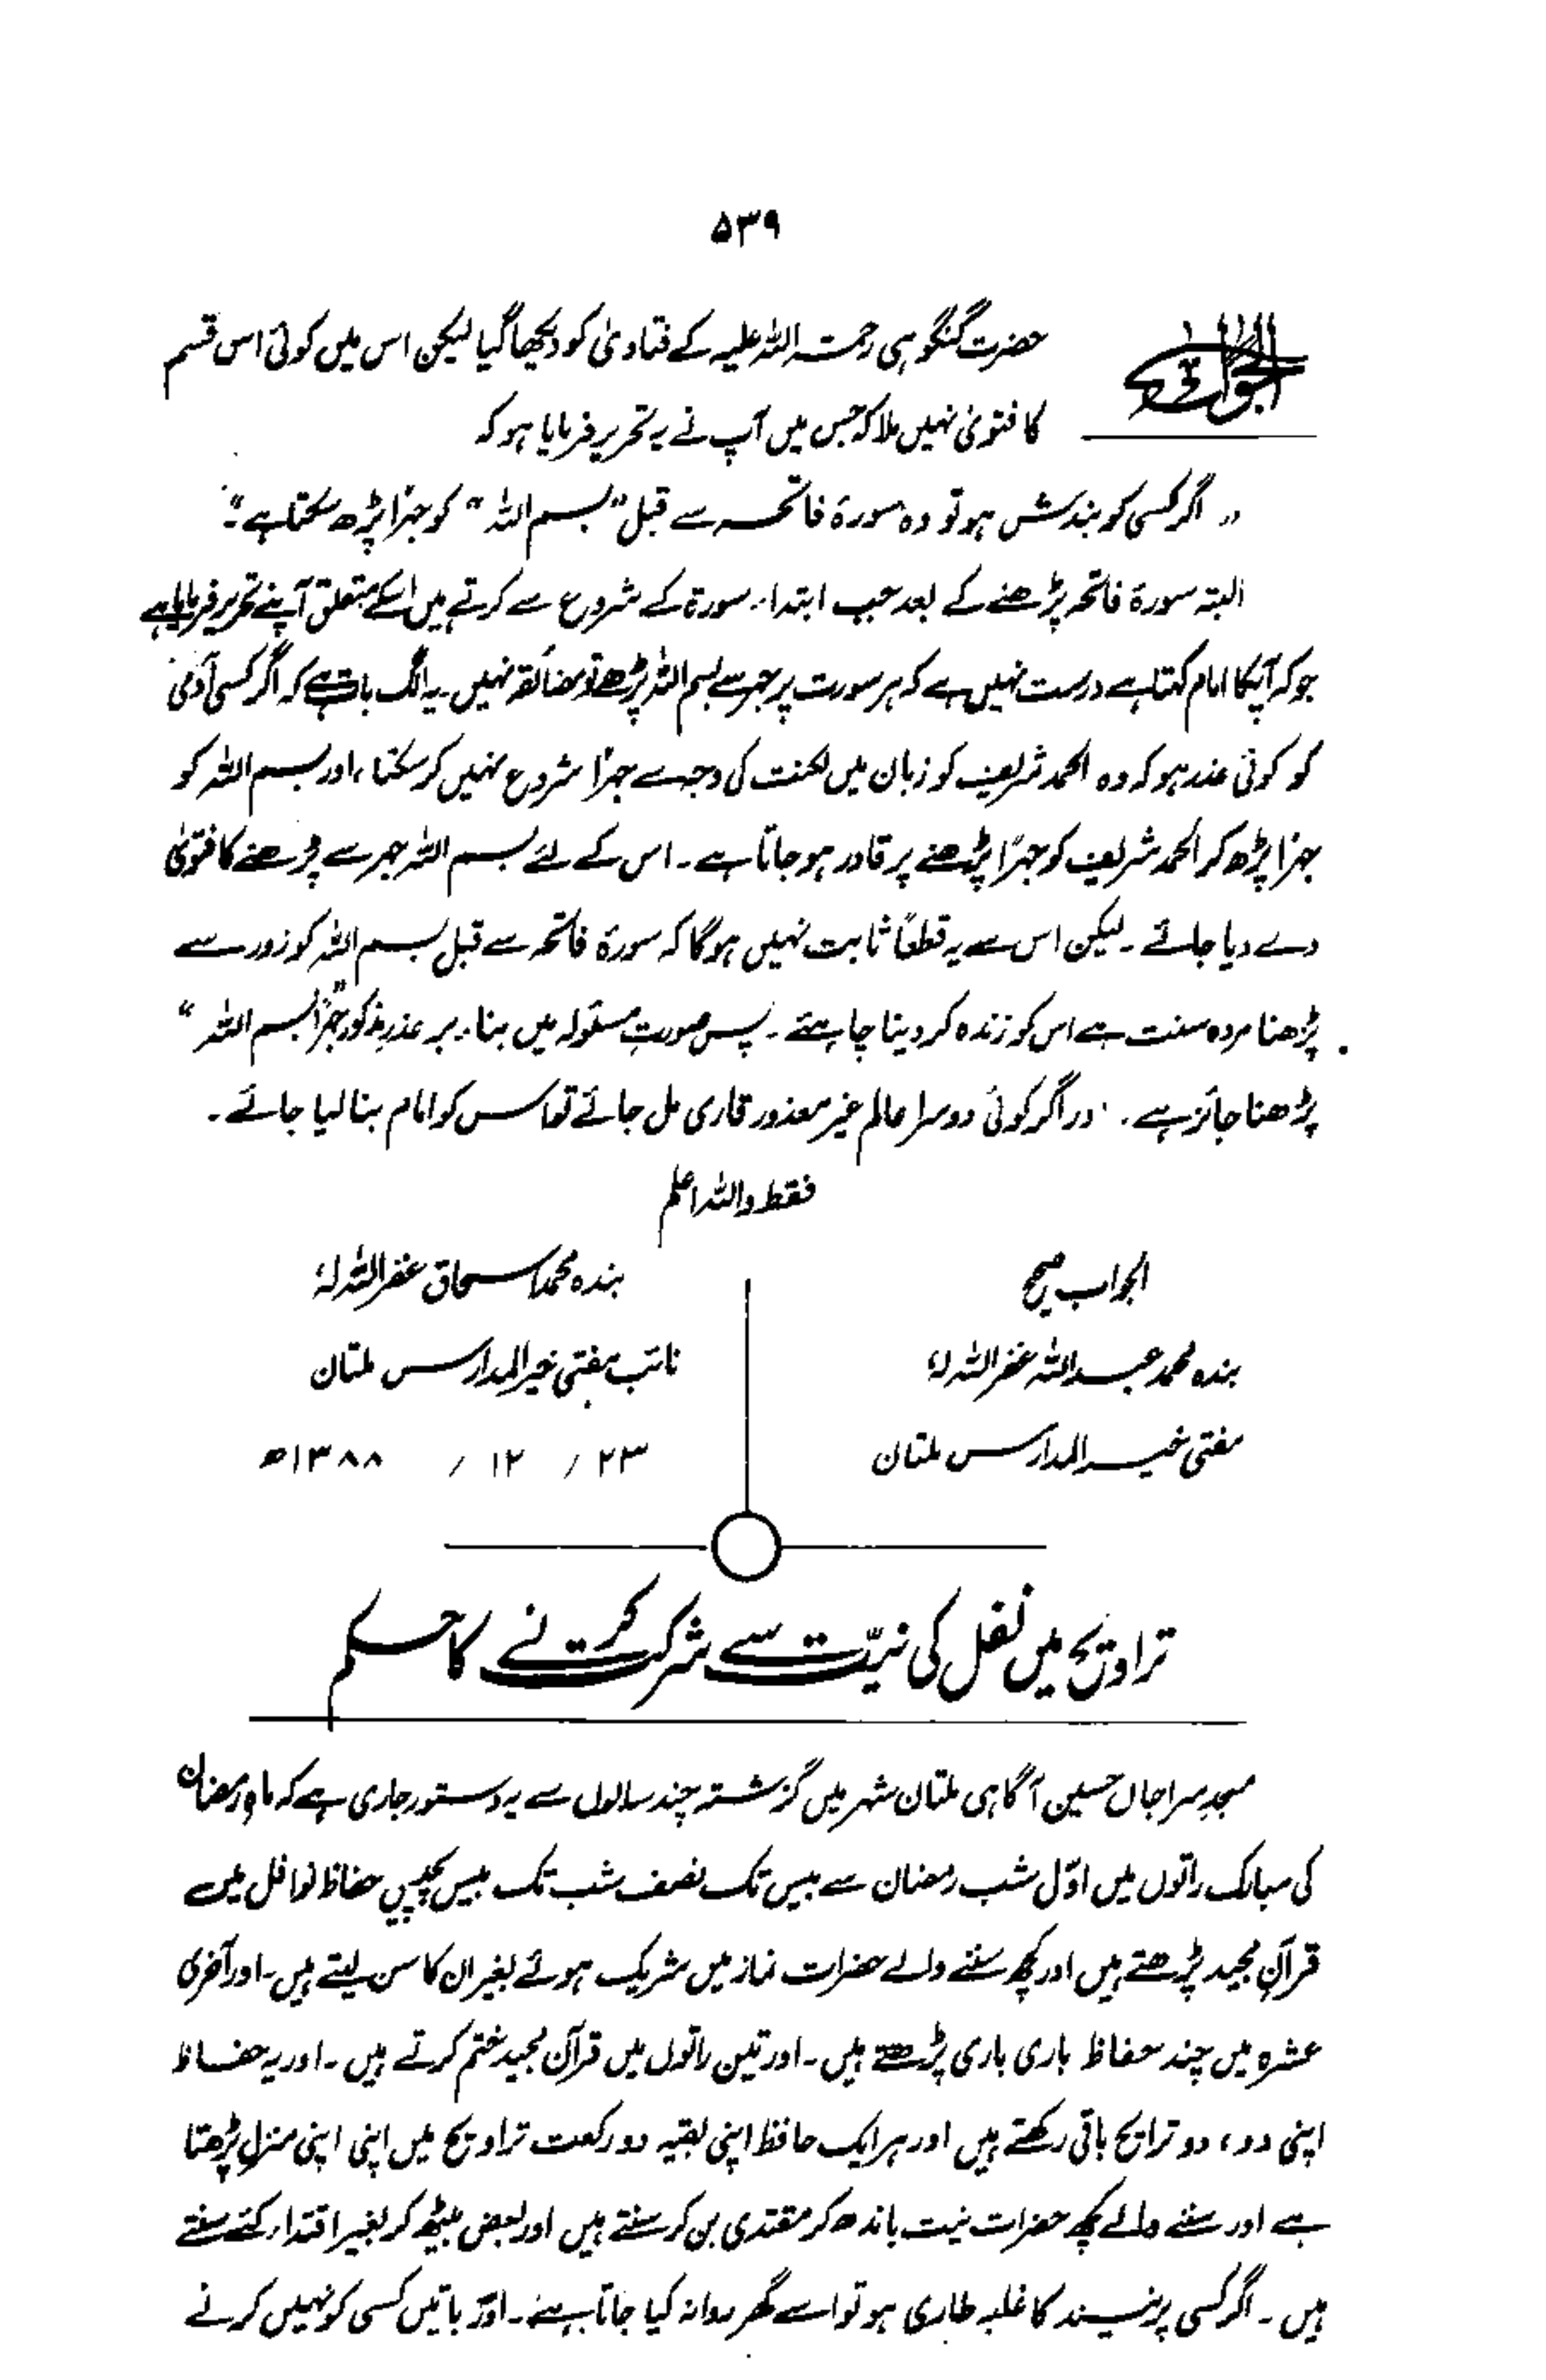 ۵۳۹
الجواب
حضرت گنگوہی رحمتہ اللہ علیہ کے فتاویٰ کو دیکھا گیا لیکن اس میں کوئی اس قسم
کا فتویٰ نہیں ملا کہ جس میں آپ نے یہ تحریر فرمایا ہو کہ
" اگر کسی کو بندش ہو تو وہ سورۃ فاتحہ سے قبل "بسم اللہ" کو جہرًا پڑھ سکتا ہے"۔
البتہ سورۃ فاتحہ پڑھنے کے بعد جب ابتداء سورۃ کے شروع سے کرتے ہیں اسکے متعلق آپنے تحریر فرمایا ہے
جو کہ آپکا امام کہتا ہے درست نہیں ہے کہ ہر سورت پر جہر سے بسم اللہ پڑھے تو مضائقہ نہیں ۔ یہ الگ بات ہے کہ اگر کسی آدمی
کو کوئی عذر ہو کہ وہ الحمد شریف کو زبان میں لکنت کی وجہ سے جہرًا شروع نہیں کر سکتا ، اور بسم اللہ کو
جہرًا پڑھ کر الحمد شریف کو جہرًا پڑھنے پر قادر ہو جاتا ہے ۔ اس کے لئے بسم اللہ جہر سے پڑھنے کا فتویٰ
دے دیا جائے ۔ لیکن اس سے یہ قطعًا ثابت نہیں ہوگا کہ سورۃ فاتحہ سے قبل بسم اللہ کو زور سے
پڑھنا مردہ سنت ہے اس کو زندہ کر دینا چاہئے ۔ پس صورتِ مسئولہ میں بناء بر عذرِ مذکور جہرًا "بسم اللہ "
پڑھنا جائز ہے ۔ اور اگر کوئی دوسرا عالم غیر معذور قاری مل جائے تو اس کو امام بنا لیا جائے ۔
فقط واللہ اعلم
الجواب صحیح
بندہ محمد عبد اللہ غفر اللہ لہٗ
مفتی خیر المدارس ملتان
بندہ محمد اسحاق غفر اللہ لہٗ
نائب مفتی خیر المدارس ملتان
۲۳ / ۱۲ / ۱۳۸۸ھ
تراویح میں نفل کی نیّت سے شرکت کرنے کا حکم
مسجد سراجاں حسین آگاہی ملتان شہر میں گزشتہ چند سالوں سے یہ دستور جاری ہے کہ ماہِ رمضان
کی مبارک راتوں میں اوّل شب رمضان سے بیس تک نصف شب تک بیس پچیس حفاظ نوافل میں
قرآنِ مجید پڑھتے ہیں اور کچھ سننے والے حضرات نماز میں شریک ہوئے بغیر ان کا سن لیتے ہیں ۔ اور آخری
عشرہ میں چند حفاظ باری باری پڑھتے ہیں ۔ اور تین راتوں میں قرآن مجید ختم کرتے ہیں ۔ اور یہ حفاظ
اپنی دو ، دو تراویح باقی رکھتے ہیں اور ہر ایک حافظ اپنی بقیہ دو رکعت تراویح میں اپنی اپنی منزل پڑھتا
ہے اور سننے والے کچھ حضرات نیت باندھ کر مقتدی بن کر سنتے ہیں اور بعض بیٹھ کر بغیر اقتداء کئے سنتے
ہیں ۔ اگر کسی پر نیند کا غلبہ طاری ہو تو اسے گھر روانہ کیا جاتا ہے ۔ اور باتیں کسی کو نہیں کرنے